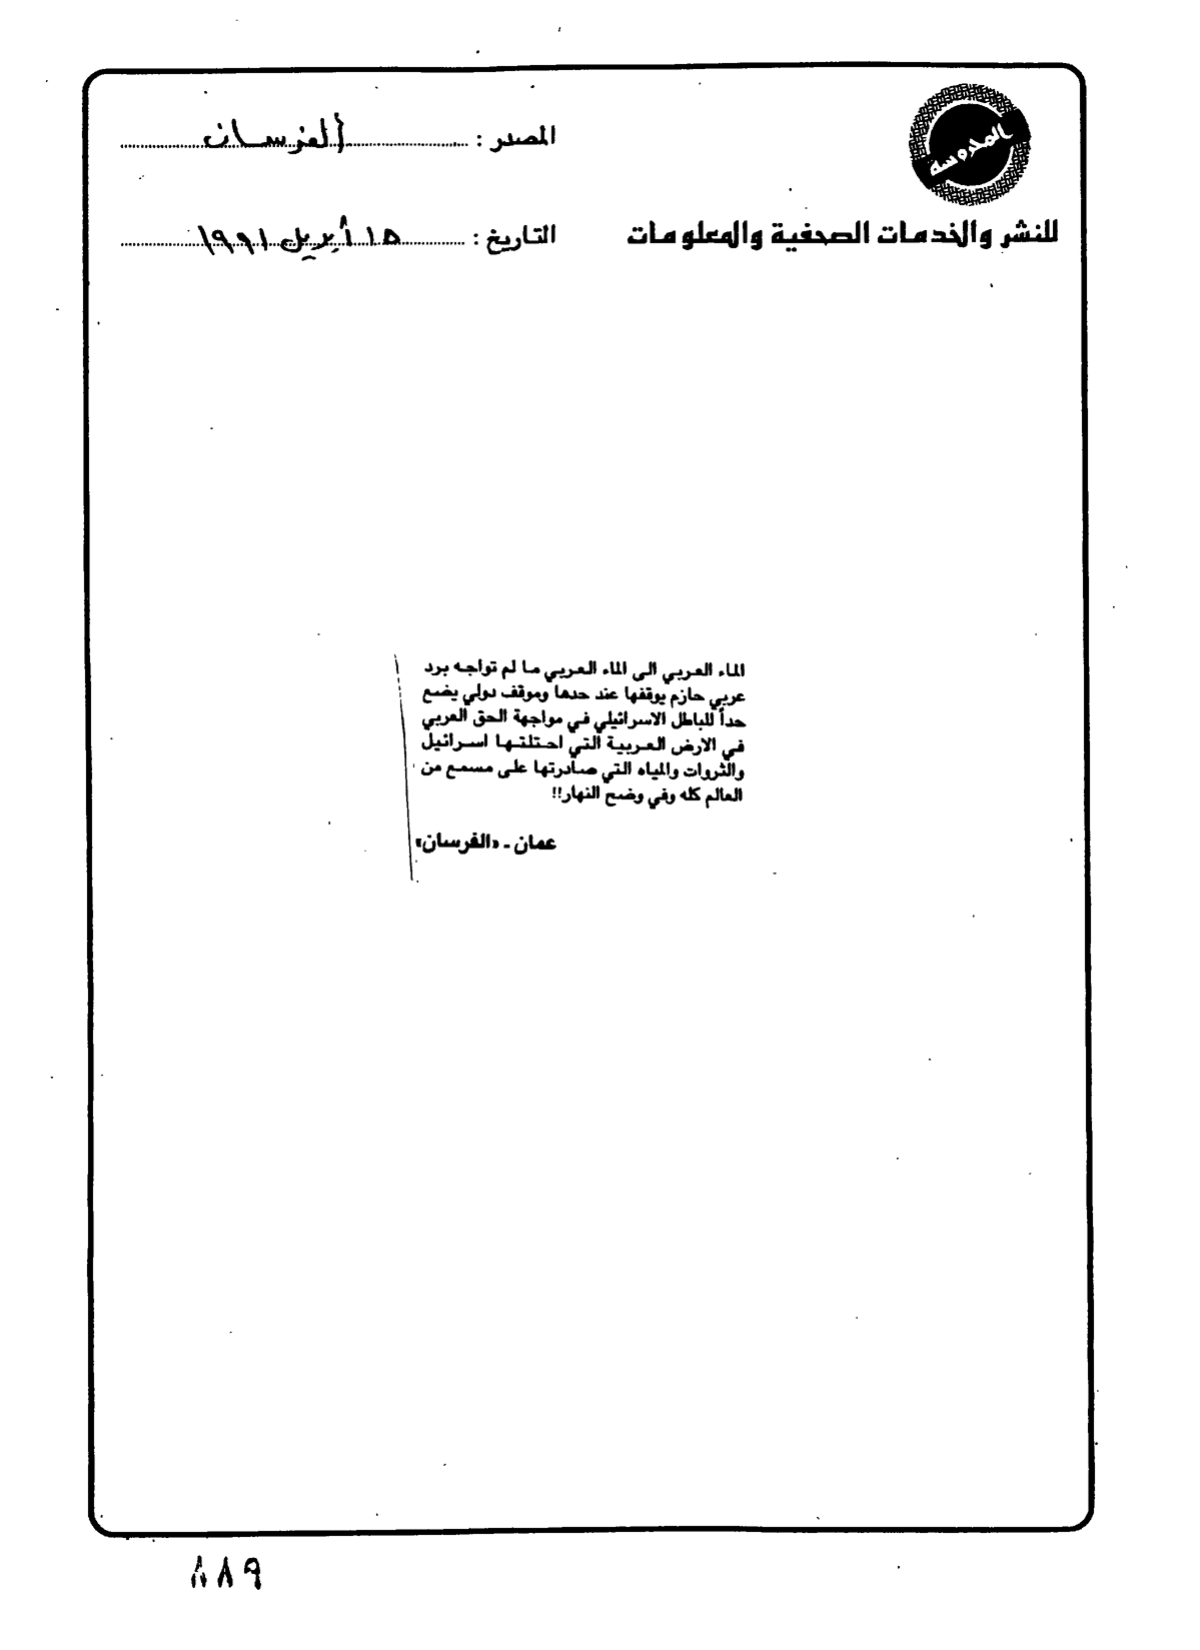 المحروسة
للنشر والخدمات الصحفية والمعلومات
المصدر : الفرسان
التاريخ : ١٥ أبريل ١٩٩١
الماء العربي الى الماء العربي ما لم تواجه برد
عربي حازم يوقفها عند حدها وموقف دولي يضع
حداً للباطل الاسرائيلي في مواجهة الحق العربي
في الارض العربية التي احتلتها اسرائيل
والثروات والمياه التي صادرتها على مسمع من
العالم كله وفي وضح النهار!!
عمان ـ «الفرسان»